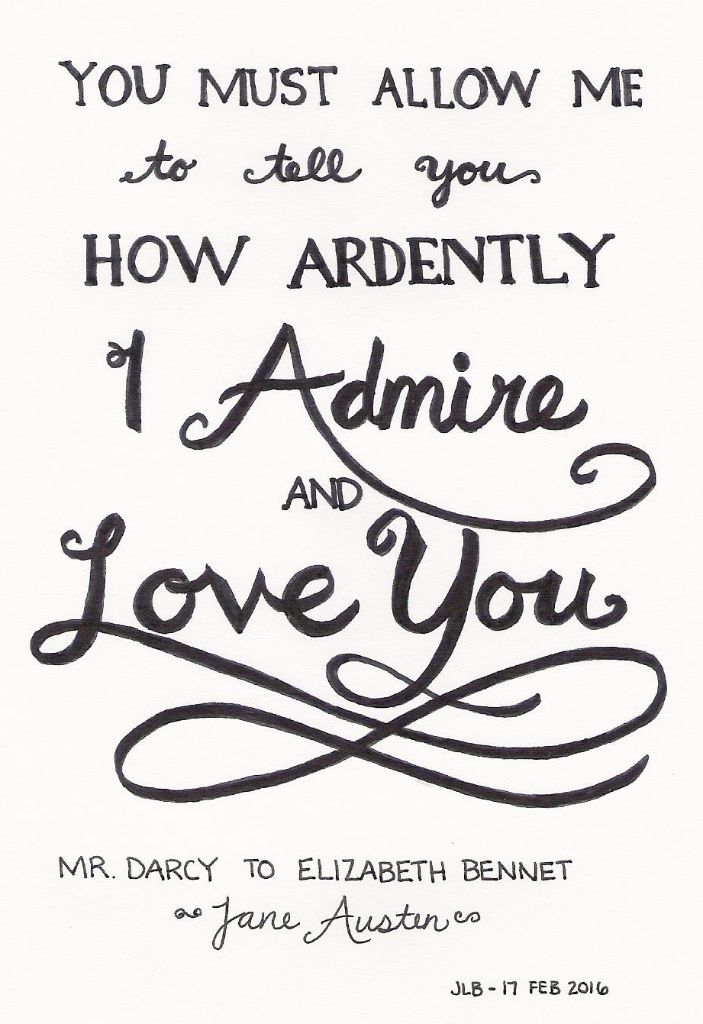 YOU MUST ALLOW ME
to tell you
HOW ARDENTLY
I Admire
AND
Love You
MR. DARCY TO ELIZABETH BENNET
Jane Austen
JLB - 17 FEB 2016